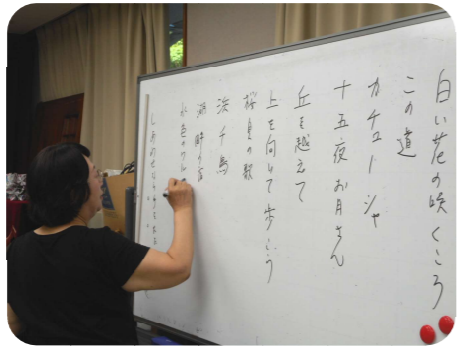 白い花の咲くころ
この道
カチューシャ
十五夜お月さん
丘を越えて
上を向いて歩こう
桜貝の歌
浜千鳥
水色のワル